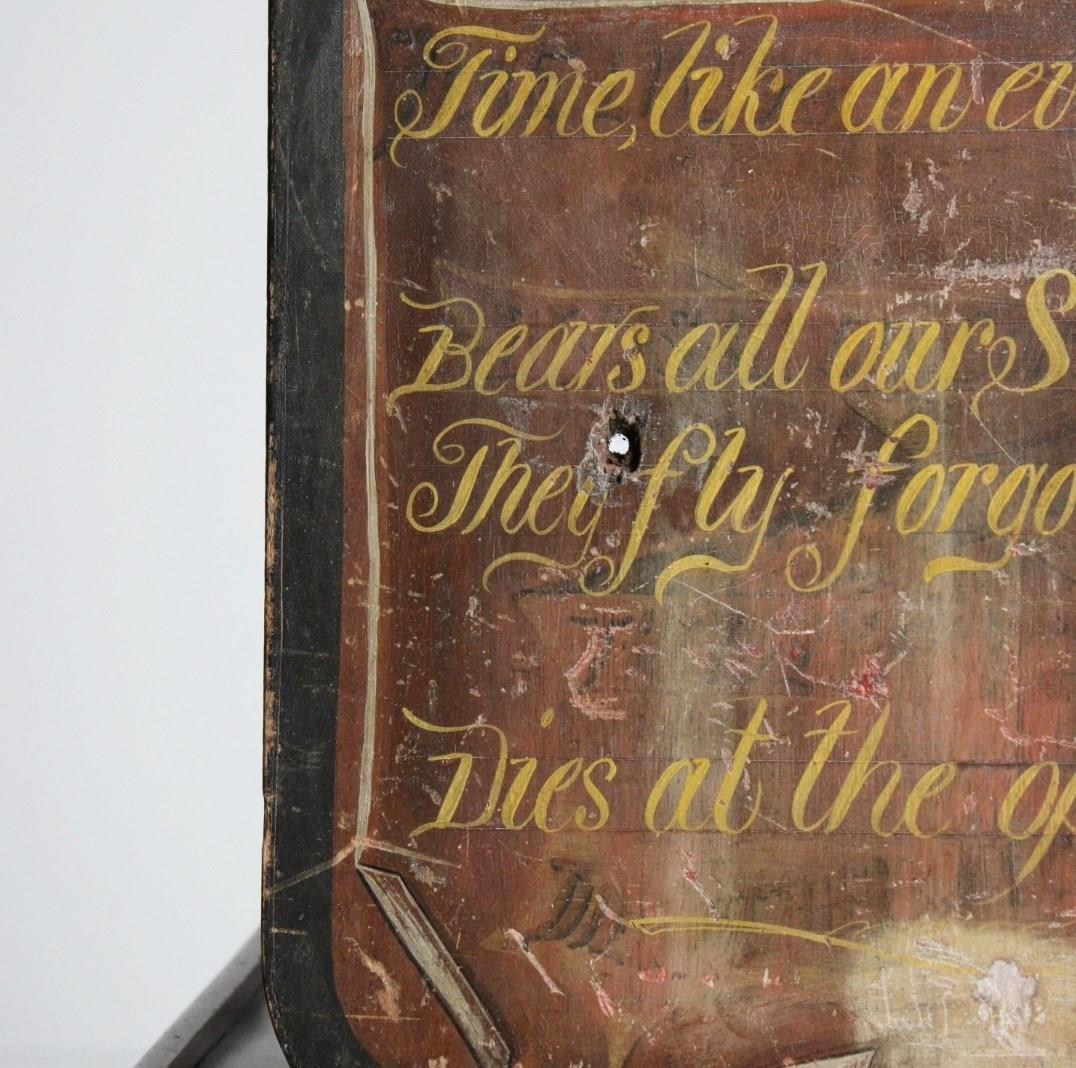 Time, like an ev
Bears all our S
They fly forgo
Dies at the op